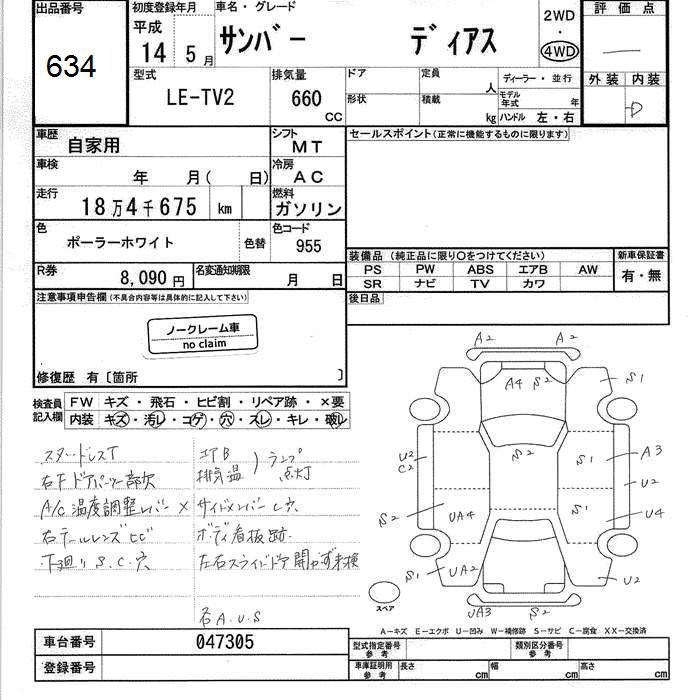 出品番号 初度登録年月 車名・グレード 2WD ・ 4WD 評価点
634 平成 14 5月 サンバー ディアス
型式 排気量 ドア 定員 人 ディーラー・並行 外装 内装
LE-TV2 660 CC 形状 積載 kg モデル年式 年 D
ハンドル 左・右
車歴 自家用 シフト MT セールスポイント(正常に機能するものに限ります)
車検 年 月( 日) 冷房 AC
走行 18万4千675 km 燃料 ガソリン
色 ポーラーホワイト 色替 色コード 955
装備品(純正品に限り○をつけてください) 新車保証書
PS PW ABS エアB AW 有・無
SR ナビ TV カワ
R券 8,090円 名変通知期限 月 日
後日品
注意事項申告欄(不具合内容等は具体的に記入して下さい)
ノークレーム車
no claim
修復歴 有〔箇所 〕
検査員記入欄 FW キズ・飛石・ヒビ割・リペア跡・×要
内装 キズ・汚レ・コゲ・穴・スレ・キレ・破レ
スタッドレスT エアB
排気温 ) ランプ点灯
右Fドアパーツ一部欠
A/C温度調整レバー× サイドメンバーC穴
右テールレンズヒビ ボディ看板跡
下廻りS.C.穴 左右スライドドア開かず未検
各A.U.S
A2 A2
A4 S2 S1
U2 C2 S2 S1 A3
U2
S2 UA4 S1 U4
S1 UA2 U2
UA3 S2
スペア
A-キズ E-エクボ U-凹み W-補修跡 S-サビ C-腐食 XX-交換済
車台番号 047305 型式指定番号 参考 類別区分番号 参考
登録番号 車庫証明用 参考 長さ cm 幅 cm 高さ cm